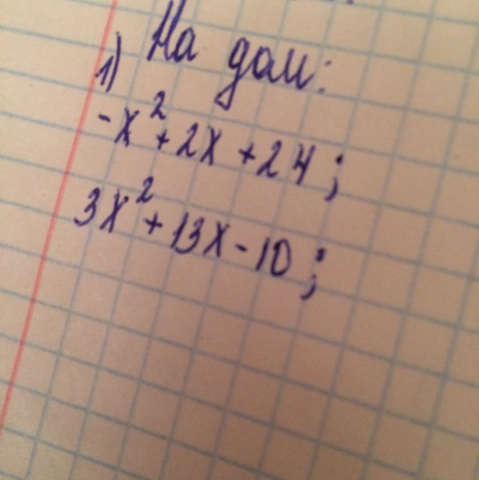 На дом:
1)
-x²+2x+24;
3x²+13x-10;